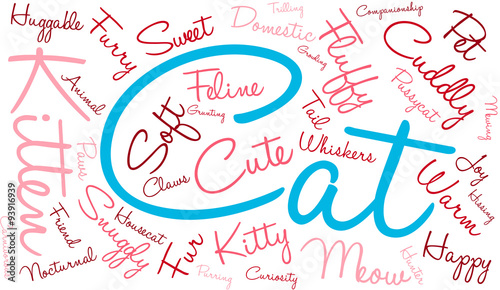 Huggable
Furry
Sweet
Trilling
Domestic
Growling
Fluffy
Companionship
Pet
Cuddly
Pussycat
Mewing
Kitten
Animal
Soft
Feline
Grunting
Cat
Tail
Whiskers
Cute
Claws
Paws
Joy
Hissing
Warm
Snuggly
Housecat
Friend
Nocturnal
Fur
Kitty
Purring
Curiosity
Meow
Hunter
Happy
Adobe Stock
© arloo
# 93916939